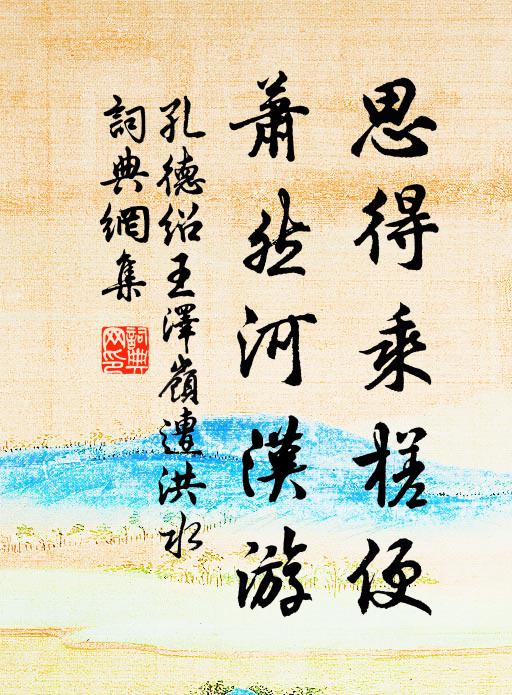 思得乘槎便
蕭然河漢游
孔德紹王澤嶺遭洪水
詞典網集
詞典網印